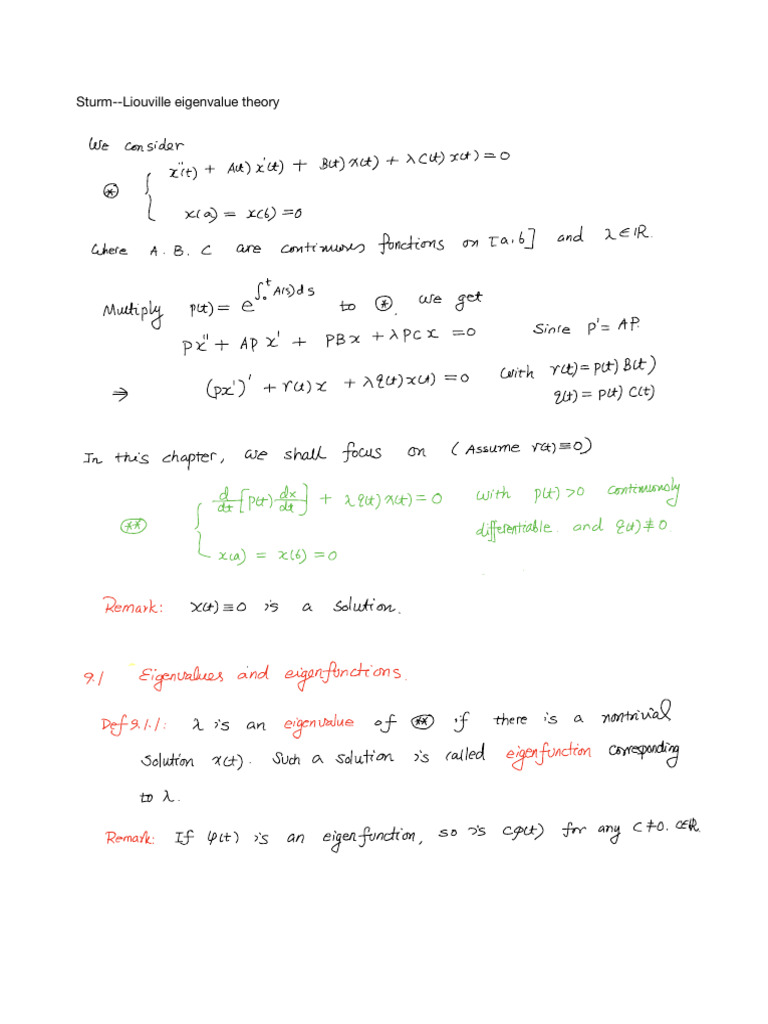 Sturm--Liouville eigenvalue theory
We consider
⊛ { x''(t) + A(t) x'(t) + B(t) x(t) + λ C(t) x(t) = 0
x(a) = x(b) = 0
where A. B. C are continuous functions on [a, b] and λ ∈ ℝ.
Multiply p(t) = e^{∫₀ᵗ A(s)ds} to ⊛. we get
px'' + AP x' + PBx + λPCx = 0 Since P' = AP.
⇒ (px')' + r(t)x + λq(t)x(t) = 0 (with r(t) = p(t) B(t)
q(t) = p(t) C(t)
In this chapter, we shall focus on (Assume r(t) ≡ 0)
(**) { d/dt [p(t) dx/dt] + λ q(t) x(t) = 0 with p(t) > 0 continuously
differentiable. and q(t) ≢ 0
x(a) = x(b) = 0
Remark: x(t) ≡ 0 is a solution.
9.1 Eigenvalues and eigenfunctions.
Def 9.1.1: λ is an eigenvalue of (**) if there is a nontrivial
solution x(t). Such a solution is called eigenfunction corresponding
to λ.
Remark: If φ(t) is an eigenfunction, so is cφ(t) for any C ≠ 0. C∈ℝ.